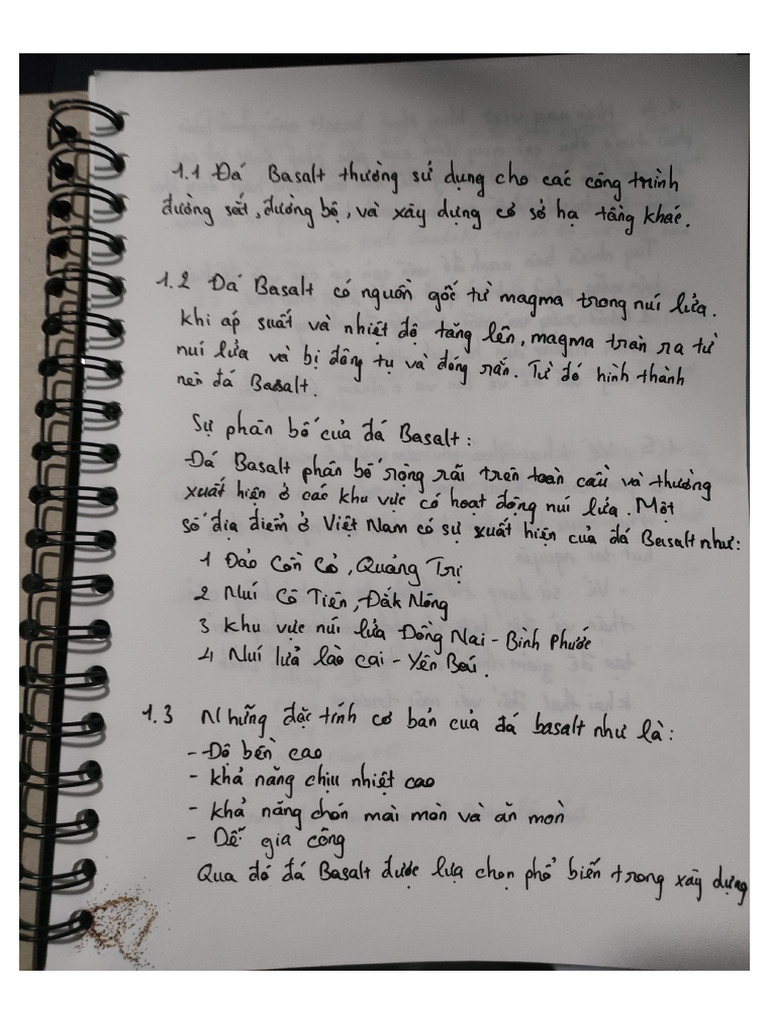 1.1 Đá Basalt thường sử dụng cho các công trình
đường sắt, đường bộ, và xây dựng cơ sở hạ tầng khác.
1.2 Đá Basalt có nguồn gốc từ magma trong núi lửa.
khi áp suất và nhiệt độ tăng lên, magma tràn ra từ
núi lửa và bị đông tụ và đóng rắn. Từ đó hình thành
nên đá Basalt.
Sự phân bố của đá Basalt:
-Đá Basalt phân bố rộng rãi trên toàn cầu và thường
xuất hiện ở các khu vực có hoạt động núi lửa. Một
số địa điểm ở Việt Nam có sự xuất hiện của đá Basalt như:
1 Đảo Cồn Cỏ, Quảng Trị
2 Núi Cô Tiên, Đắk Nông
3 Khu vực núi lửa Đồng Nai - Bình Phước
4 Núi lửa lào cai - Yên Bái.
1.3 Những đặc tính cơ bản của đá basalt như là:
- Độ bền cao
- khả năng chịu nhiệt cao
- khả năng chón mài mòn và ăn mòn
- Dễ gia công
Qua đó đá Basalt được lựa chọn phổ biến trong xây dựng